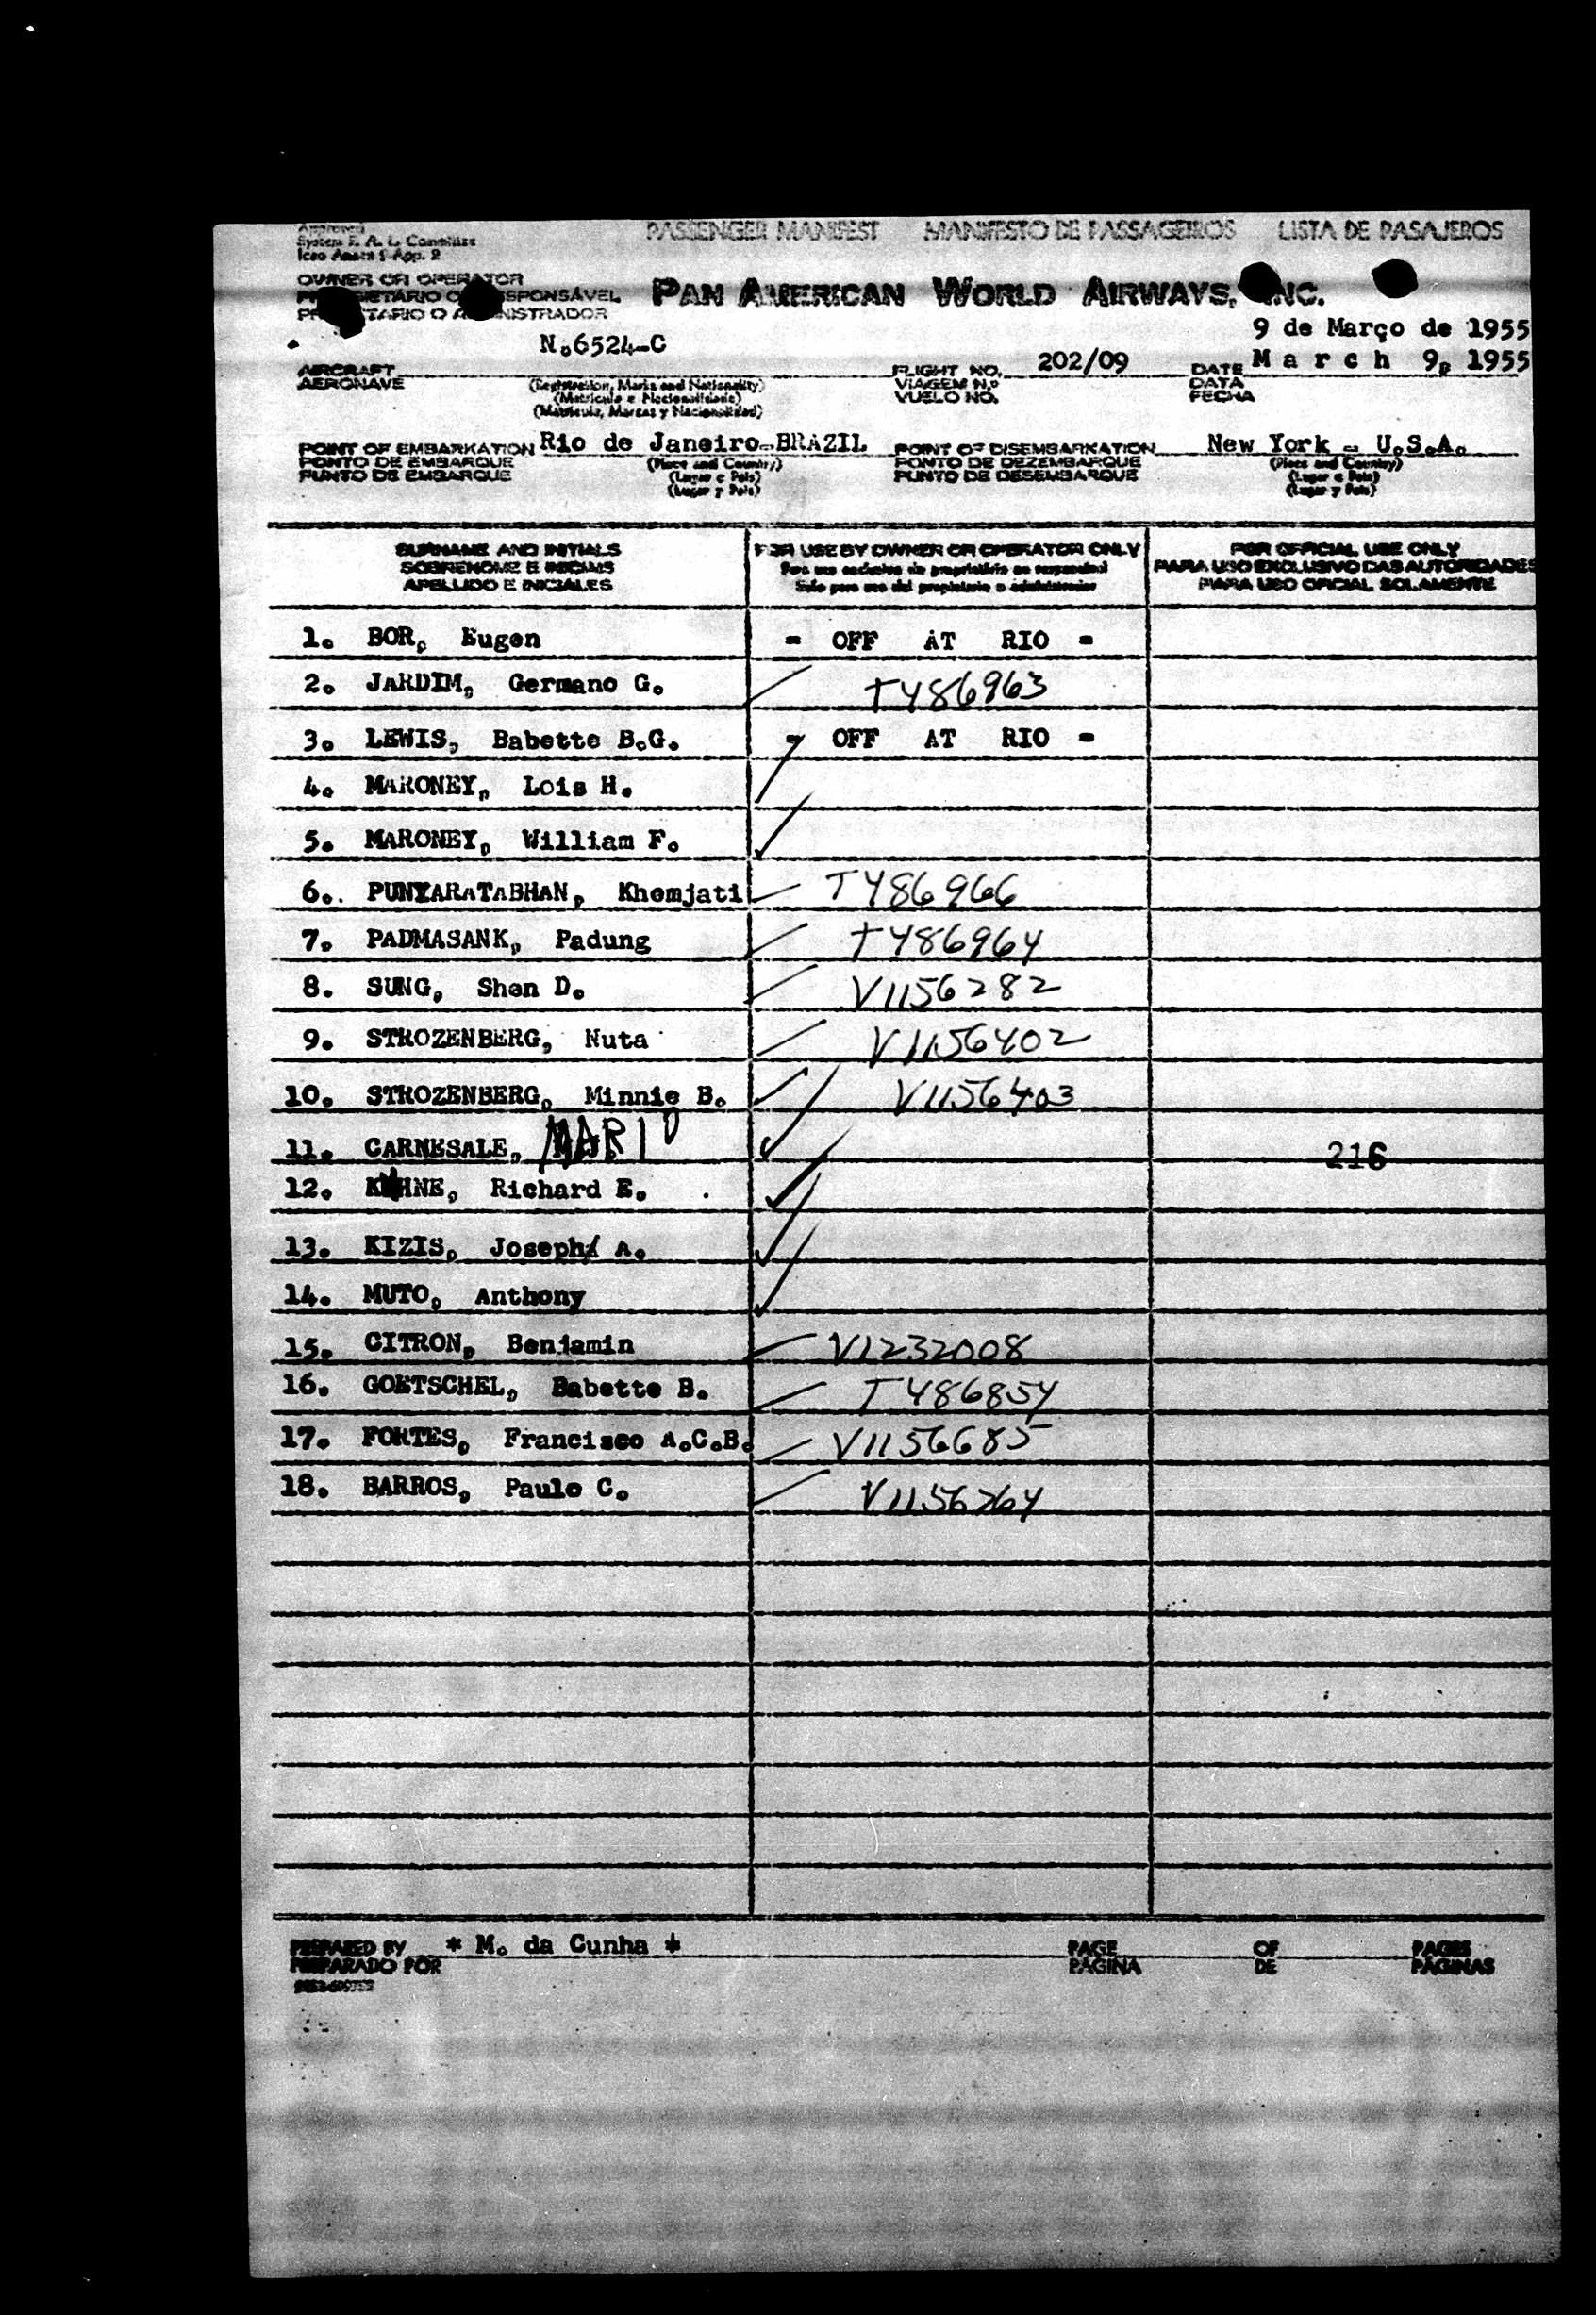 Approved
System F. A. L. Committee
Icao Annex 9 App. 2
PASSENGER MANIFEST MANIFESTO DE PASSAGEIROS LISTA DE PASAJEROS
OWNER OR OPERATOR
SPONSÁVEL
NISTRADOR
PAN AMERICAN WORLD AIRWAYS, INC.
9 de Março de 1955
N.6524-C
AIRCRAFT
AERONAVE
(Registration, Marks and Nationality)
(Matrícula e Nacionalidade)
(Matrícula, Marcas y Nacionalidad)
FLIGHT NO. 202/09
VIAGEM N.º
VUELO NO.
DATE March 9, 1955
DATA
FECHA
POINT OF EMBARKATION Rio de Janeiro-BRAZIL
PONTO DE EMBARQUE
PUNTO DE EMBARQUE
(Place and Country)
(Lugar e País)
(Lugar y País)
POINT OF DISEMBARKATION New York - U.S.A.
PONTO DE DEZEMBARQUE
PUNTO DE DESEMBARQUE
(Place and Country)
(Lugar e País)
(Lugar y País)
SURNAME AND INITIALS
SOBRENOME E INICIAIS
APELLIDO E INICIALES
FOR USE BY OWNER OR OPERATOR ONLY
Para uso exclusivo do proprietário ou responsável
Solo para uso del propietario o administrador
FOR OFFICIAL USE ONLY
PARA USO EXCLUSIVO DAS AUTORIDADES
PARA USO OFICIAL SOLAMENTE
1. BOR, Eugen - OFF AT RIO -
2. JARDIM, Germano G. T486963
3. LEWIS, Babette B.G. - OFF AT RIO -
4. MARONEY, Lois H.
5. MARONEY, William F.
6.. PUNYARATABHAN, Khemjati T486966
7. PADMASANK, Padung T486964
8. SUNG, Shen D. V1156282
9. STROZENBERG, Nuta V1156402
10. STROZENBERG, Minnie B. V1156403
11. CARNESALE, MARIO 216
12. KHNE, Richard E.
13. KIZIS, Joseph A.
14. MUTO, Anthony
15. CITRON, Benjamin V1232008
16. GOETSCHEL, Babette B. T486854
17. FORTES, Francisco A.C.B. V1156685
18. BARROS, Paulo C. V1156764
PREPARED BY * M. da Cunha *
PREPARADO POR
PAGE OF PAGES
PÁGINA DE PÁGINAS